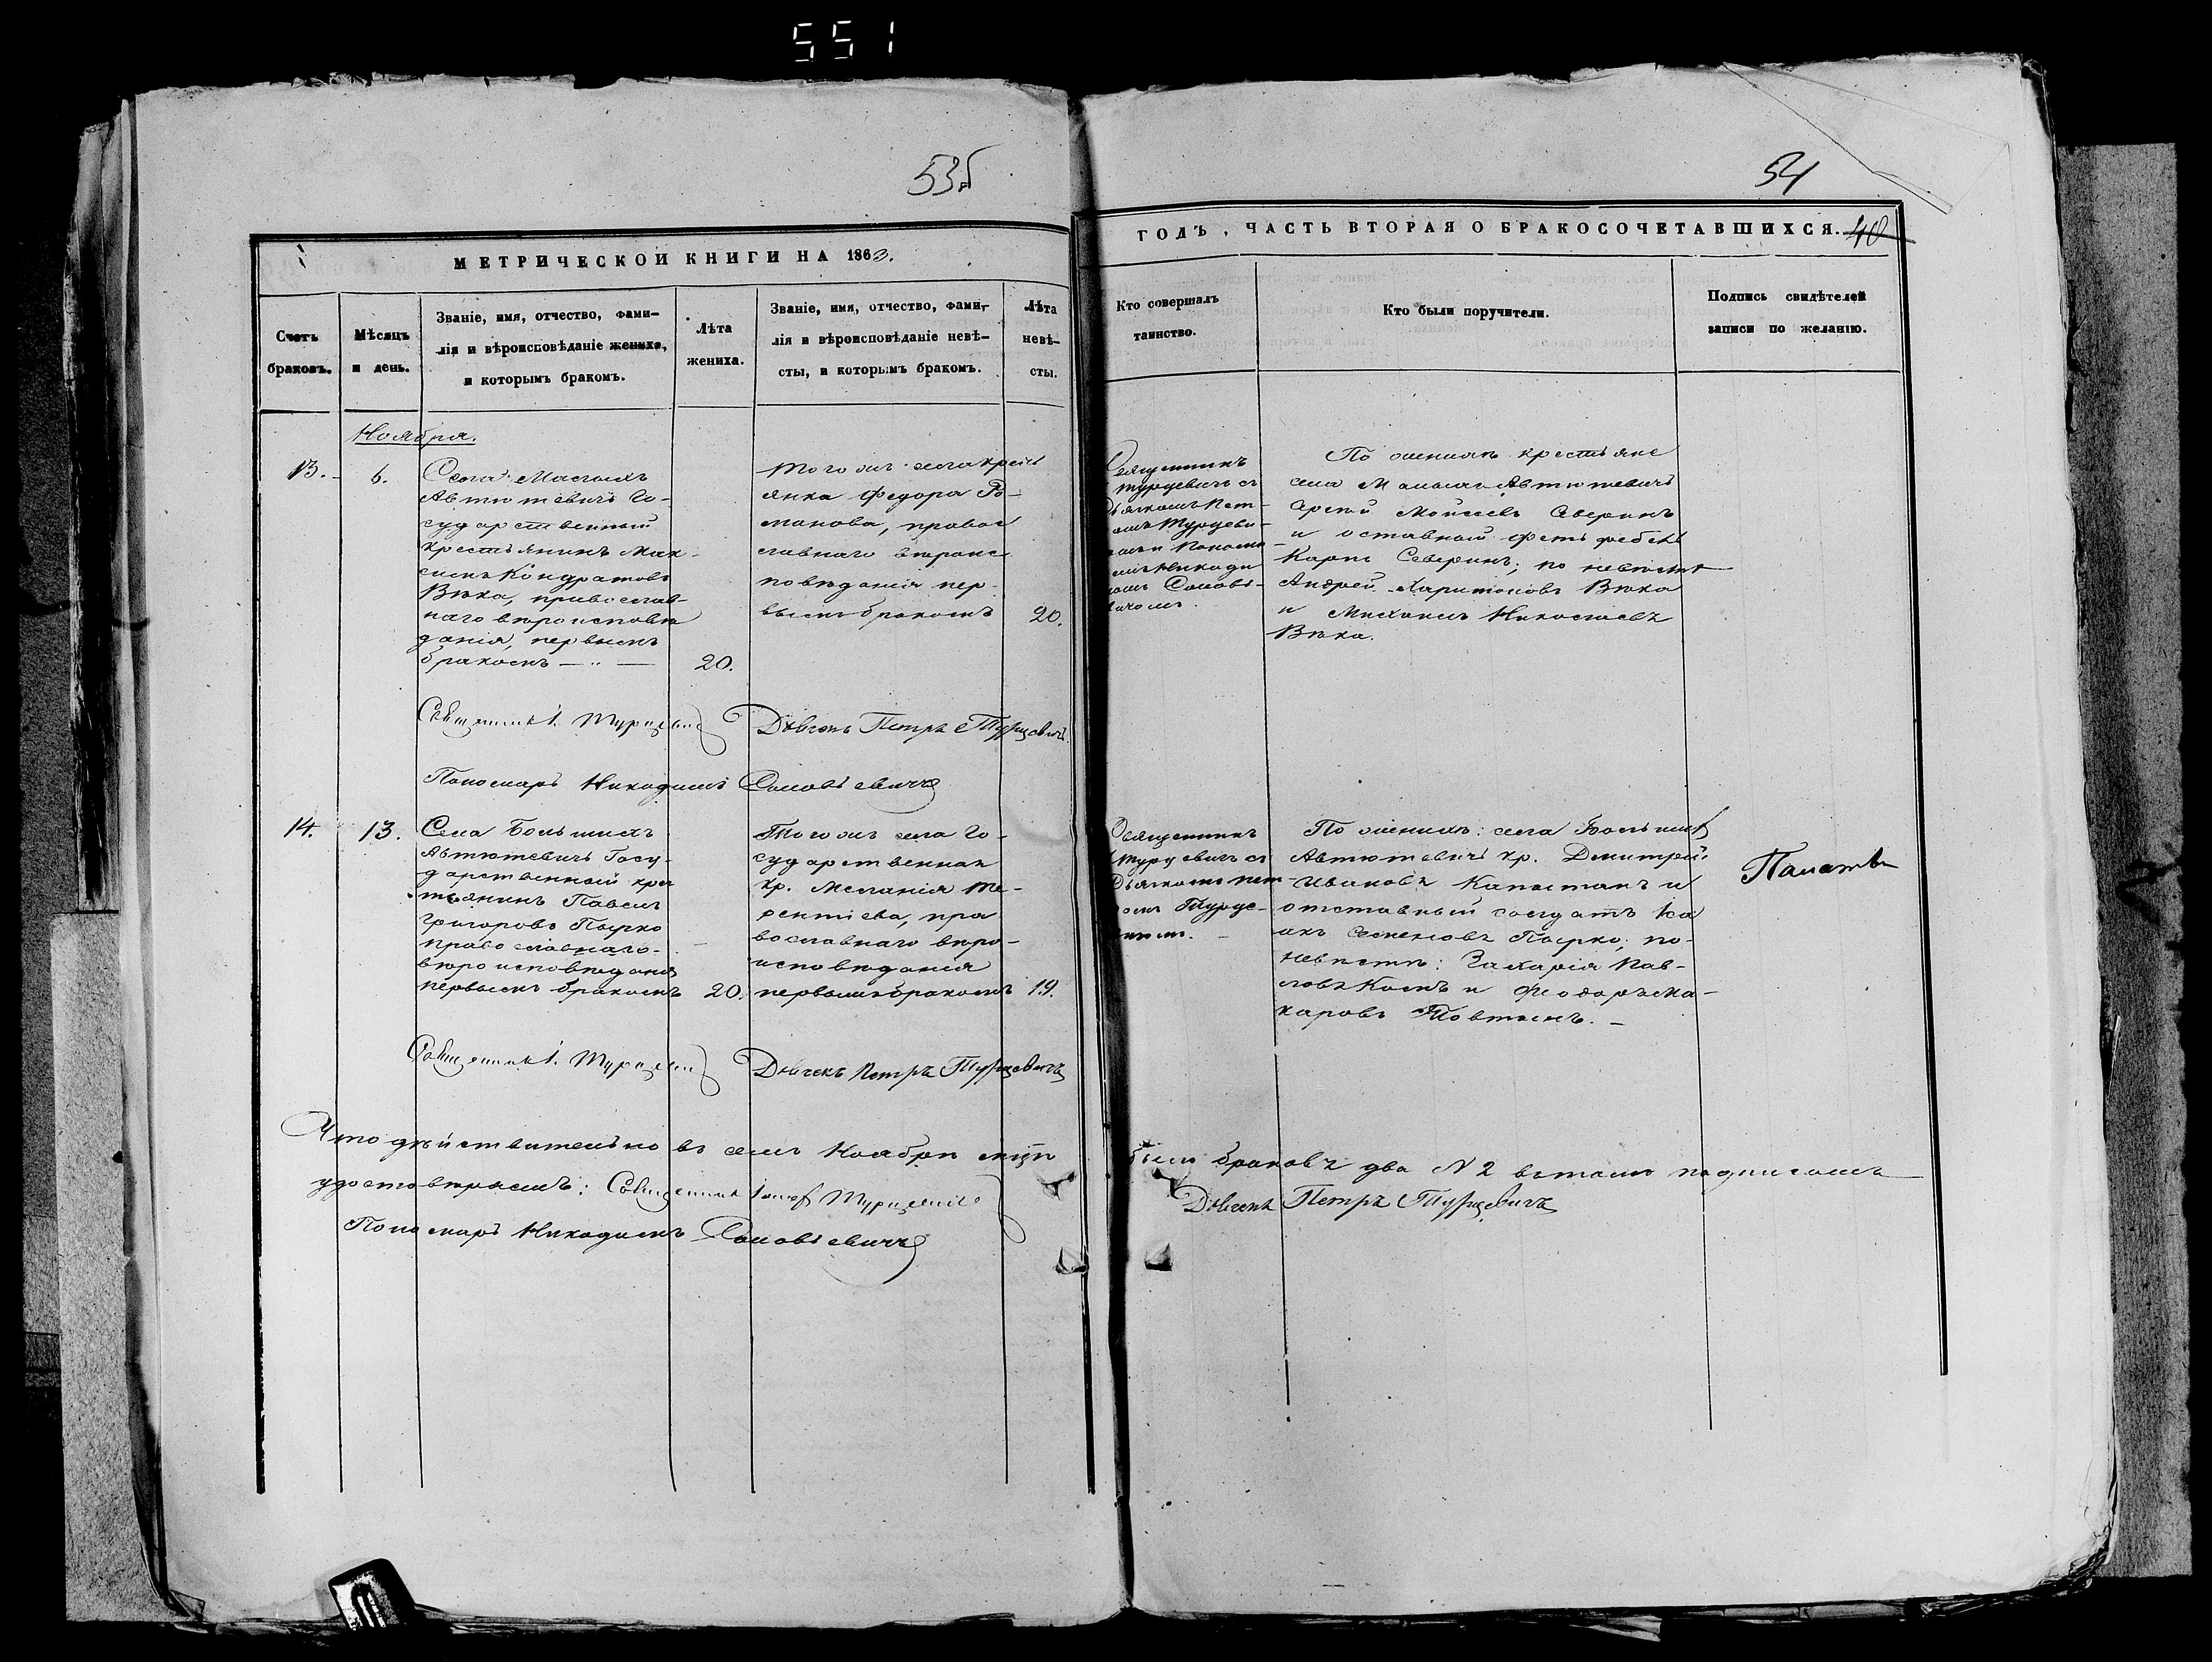 551
53б
54
МЕТРИЧЕСКОЙ КНИГИ НА 1863.
ГОДЪ, ЧАСТЬ ВТОРАЯ О БРАКОСОЧЕТАВШИХСЯ. 40
Счетъ
браковъ.
Мѣсяцъ
и день.
Званіе, имя, отчество, фами-
лія и вѣроисповѣданіе жениха,
и которымъ бракомъ.
Лѣта
жениха.
Званіе, имя, отчество, фами-
лія и вѣроисповѣданіе невѣ-
сты, и которымъ бракомъ.
Лѣта
невѣ-
сты.
Кто совершалъ
таинство.
Кто были поручители.
Подпись свидѣтелей
записи по желанію.
Ноября.
13.
6.
Села Малыхъ
Автютевичъ Го-
сударственный
крестьянинъ Мак-
симъ Кондратовъ
Вѣка, православ-
наго вѣроисповѣ
данія, первымъ
бракомъ — „ —
20.
того же села крест
янка Федора Ро-
манова, правос
лавнаго вѣроис
повѣданія пер-
вымъ бракомъ
20.
Священникъ
Турцевичъ съ
Дьячкомъ Пет-
омъ Турцеви-
чемъ и Понома
емъ Никоди
момъ Соловь-
По женихѣ крестьяне
села Малыхъ Автютевичъ
Сергій Моисеевъ Северинъ
и оставный
Карпъ Северинъ; по невѣстѣ
Андрей Харитоновъ Вѣка
и Михаилъ Николаевъ
Вѣка.
Священникъ І. Турцевичъ Дьячокъ Петръ Турцевичъ
Пономаръ Никодимъ Соловьевичъ
14.
13.
Села Большихъ
Автютевичъ Госу-
дарственный крес
тьянинъ Павелъ
Григоровъ Пырко
православнаго-
вѣроисповѣданія
первымъ бракомъ
20.
Того же села Го-
сударственная
кр. Меланія Те-
рентіева, пра
вославнаго вѣро-
исповѣданія
первымъ бракомъ
19.
Священникъ
Турцевичъ съ
Дьячкомъ Пет-
ромъ Турце-
вичемъ. —
По женихѣ: села Большихъ
Автютевичъ кр. Димитрій
Ивановъ Капитанъ и
отставный солдатъ Иса
акъ Семеновъ Пырко; по-
невѣстѣ: Захарія Пав-
ловъ и Феодоръ Ма-
каровъ Товтынъ. —
Священникъ І. Турцевичъ Дьячекъ Петръ Турцевичъ
Что дѣйствительно въ семъ Ноябри мцѣ было браковъ два N 2 въ томъ подписомъ
удостовѣряемъ: Священникъ Іосифъ Турцевичъ Дьячекъ Петръ Турцевичъ
Пономаръ Никодимъ Соловьевичъ